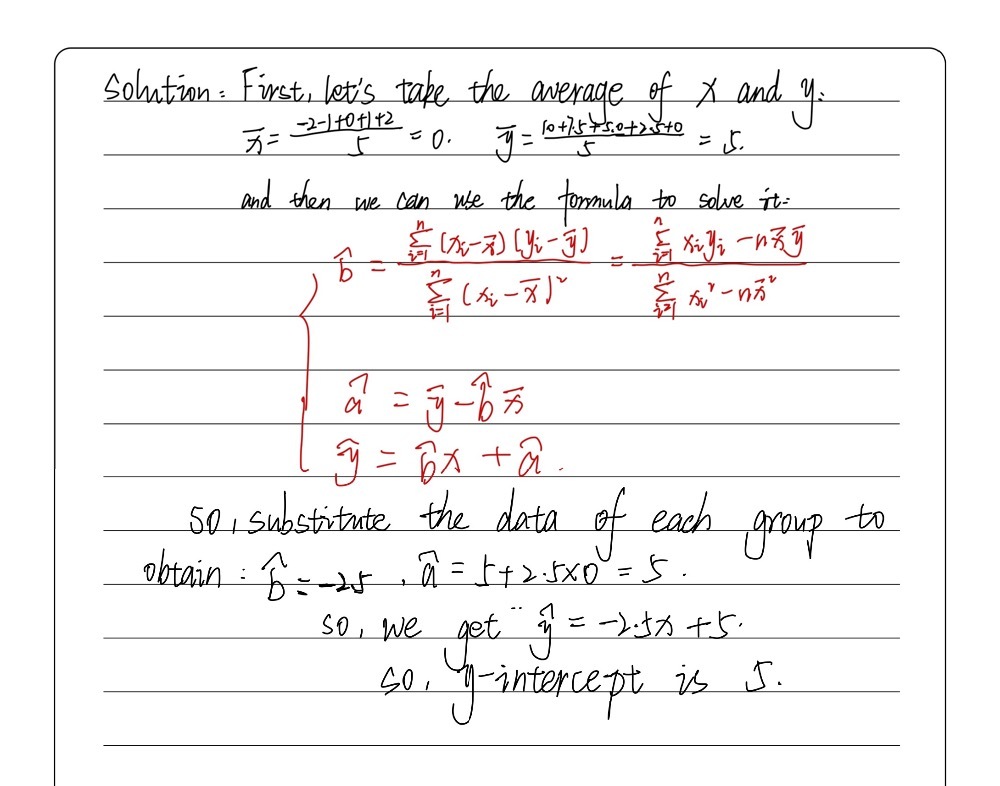 Solution: First, let's take the average of x and y:
x̄ = (-2-1+0+1+2)/5 = 0. ȳ = (10+7.5+5.0+2.5+0)/5 = 5.
and then we can use the formula to solve it:
b̂ = (∑_{i=1}^{n} (xᵢ-x̄)(yᵢ-ȳ)) / (∑_{i=1}^{n} (xᵢ-x̄)²) = (∑_{i=1}^{n} xᵢyᵢ - nx̄ȳ) / (∑_{i=1}^{n} xᵢ² - nx̄²)
â = ȳ - b̂x̄
ŷ = b̂x + â.
So, substitute the data of each group to
obtain: b̂ = -2.5, â = 5+2.5×0 = 5.
so, we get ŷ = -2.5x+5.
so, y-intercept is 5.